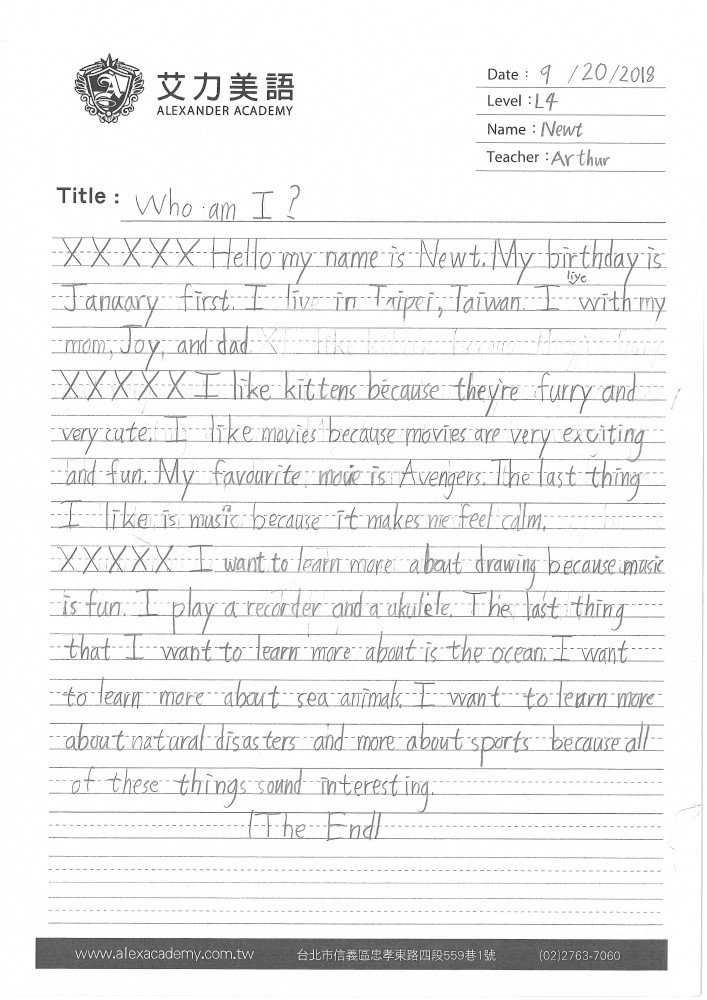 艾力美語
ALEXANDER ACADEMY
Date : 9 /20/2018
Level : L4
Name : Newt
Teacher : Arthur
Title : Who am I ?
XXXXX Hello my name is Newt. My birthday is
January first. I live in Taipei, Taiwan. I live with my
mom, Joy, and dad.
XXXXX I like kittens because they're furry and
very cute. I like movies because movies are very exciting
and fun. My favourite movie is Avengers. The last thing
I like is music because it makes me feel calm.
XXXXX I want to learn more about drawing because music
is fun. I play a recorder and a ukulele. The last thing
that I want to learn more about is the ocean. I want
to learn more about sea animals. I want to learn more
about natural disasters and more about sports because all
of these things sound interesting.
(The End)
www.alexacademy.com.tw 台北市信義區忠孝東路四段559巷1號 (02)2763-7060